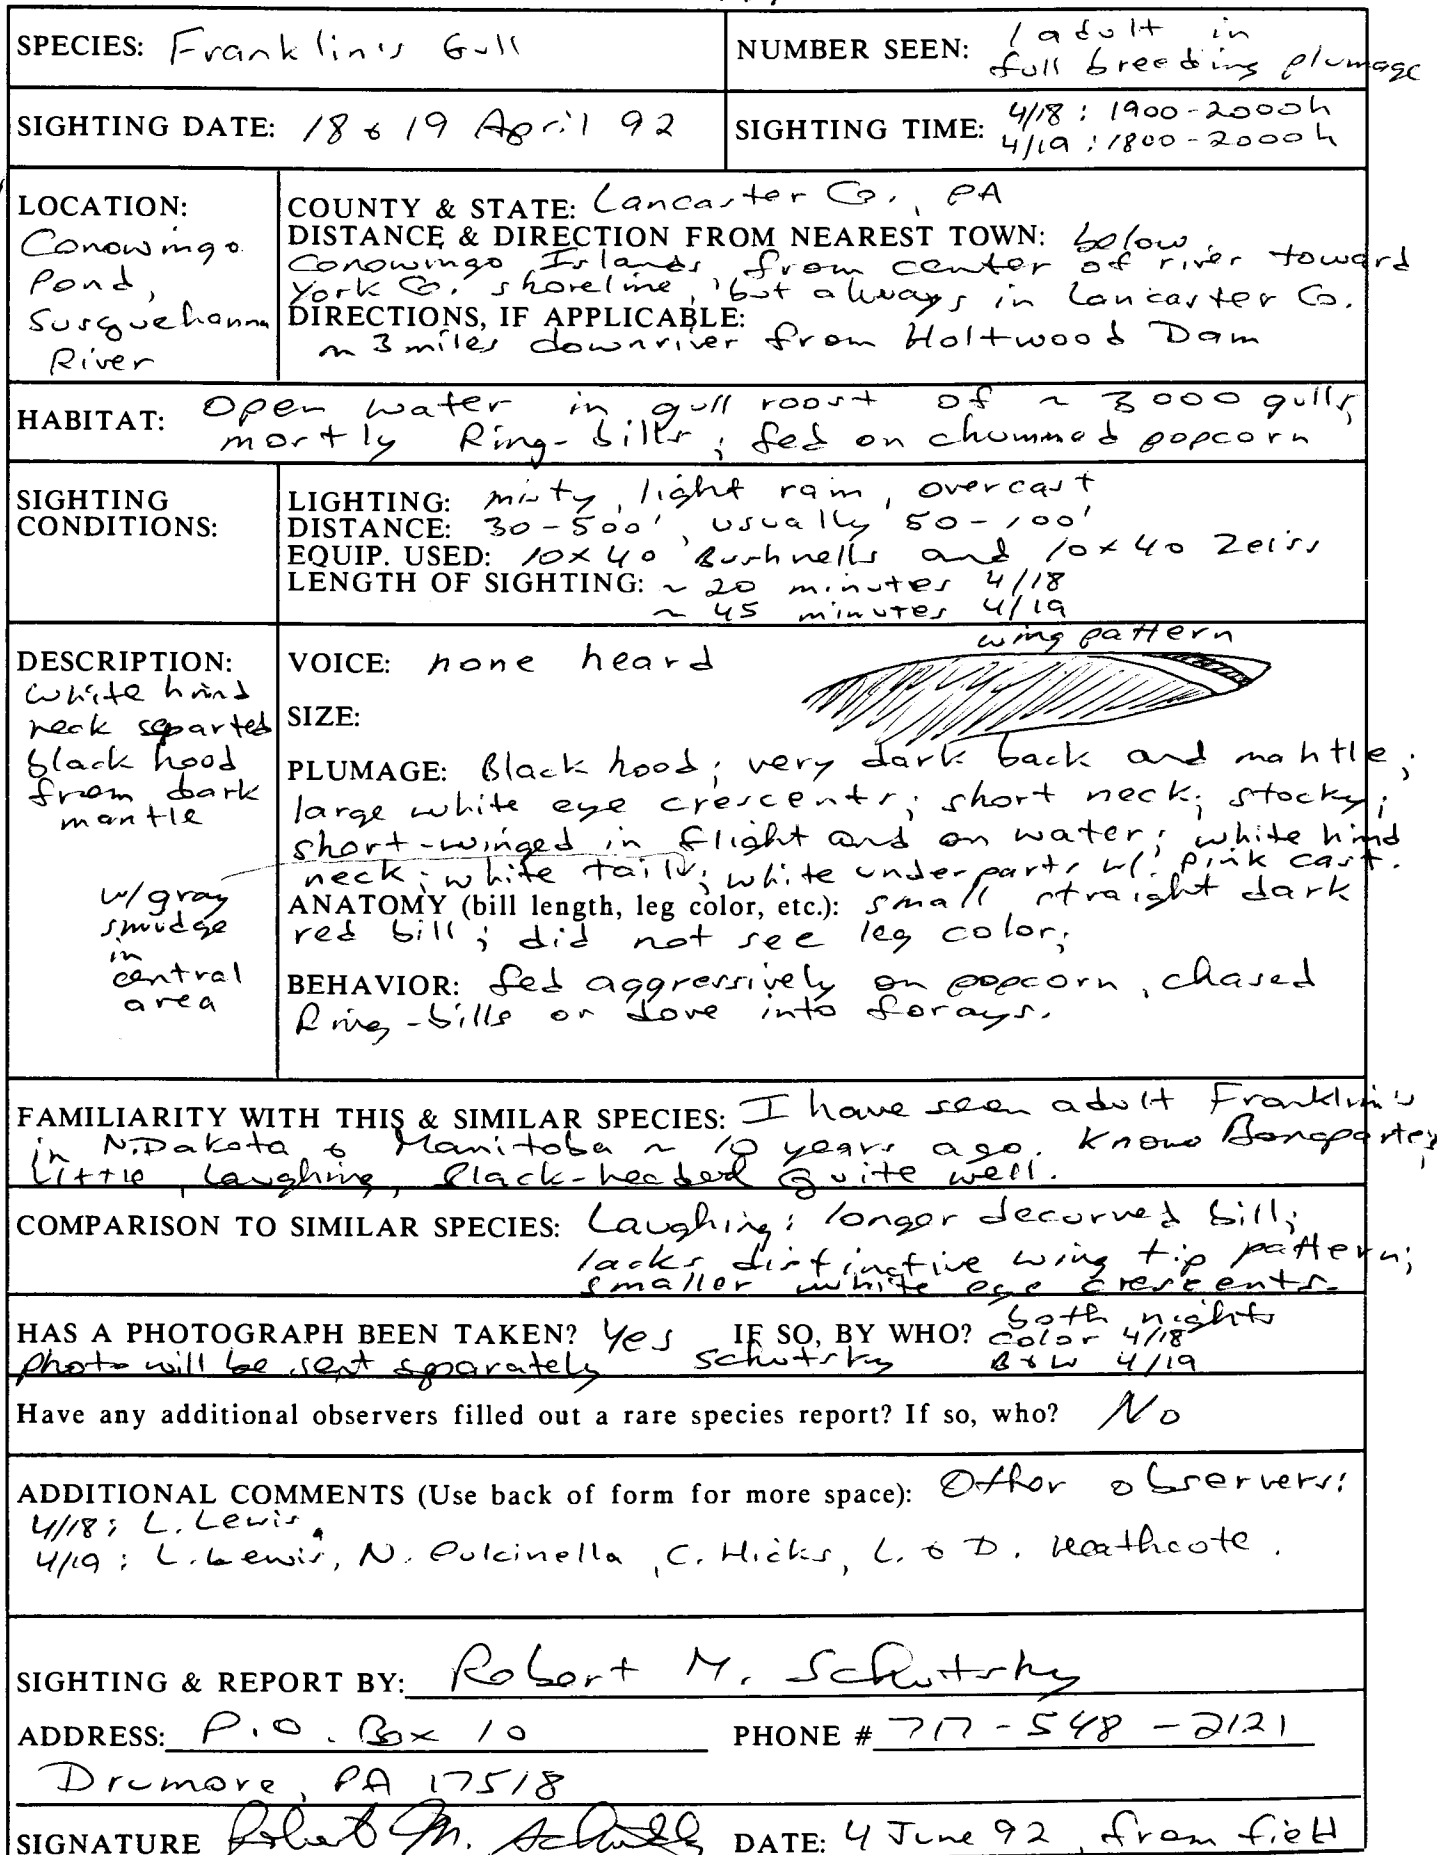 SPECIES: Franklin's Gull
NUMBER SEEN: 1 adult in
full breeding plumage
SIGHTING DATE: 18 & 19 April 92
SIGHTING TIME: 4/18: 1900-2000h
4/19: 1800-2000h
LOCATION:
Conowingo
Pond,
Susquehanna
River
COUNTY & STATE: Lancaster Co., PA
DISTANCE & DIRECTION FROM NEAREST TOWN: below
Conowingo Islands, from center of river toward
York Co. shoreline, but always in Lancaster Co.
DIRECTIONS, IF APPLICABLE:
~ 3 miles downriver from Holtwood Dam
HABITAT: Open water in gull roost of ~ 3000 gulls,
mostly Ring-bills; fed on chummed popcorn
SIGHTING
CONDITIONS:
LIGHTING: misty, light rain, overcast
DISTANCE: 30-500', usually 50-100'
EQUIP. USED: 10x40 Bushnells and 10x40 Zeiss
LENGTH OF SIGHTING: ~ 20 minutes 4/18
~ 45 minutes 4/19
DESCRIPTION:
white hind
neck separted
black hood
from dark
mantle
w/gray
smudge
in
central
area
wing pattern
VOICE: none heard
SIZE:
PLUMAGE: Black hood; very dark back and mantle;
large white eye crescents; short neck; stocky;
short-winged in flight and on water; white hind
neck; white tail; white underparts w/ pink cast.
ANATOMY (bill length, leg color, etc.): small straight dark
red bill; did not see leg color;
BEHAVIOR: fed aggressively on popcorn, chased
Ring-bills or dove into forays.
FAMILIARITY WITH THIS & SIMILAR SPECIES: I have seen adult Franklin's
in N.Dakota & Manitoba ~ 10 years ago. Know Bonapartes,
Little, Laughing, Black-headed quite well.
COMPARISON TO SIMILAR SPECIES: Laughing: longer decurved bill;
lacks distinctive wing tip pattern;
smaller white eye crescents.
HAS A PHOTOGRAPH BEEN TAKEN? Yes IF SO, BY WHO? both nights
color 4/18
photo will be sent separately Schutsky B&W 4/19
Have any additional observers filled out a rare species report? If so, who? No
ADDITIONAL COMMENTS (Use back of form for more space): Other observers:
4/18: L. Lewis.
4/19: L. Lewis, N. Pulcinella, C. Hicks, L. & D. Heathcote.
SIGHTING & REPORT BY: Robert M. Schutsky
ADDRESS: P.O. Box 10 PHONE # 717-548-2121
Drumore, PA 17518
SIGNATURE Robert M. Schutsky DATE: 4 June 92, from field